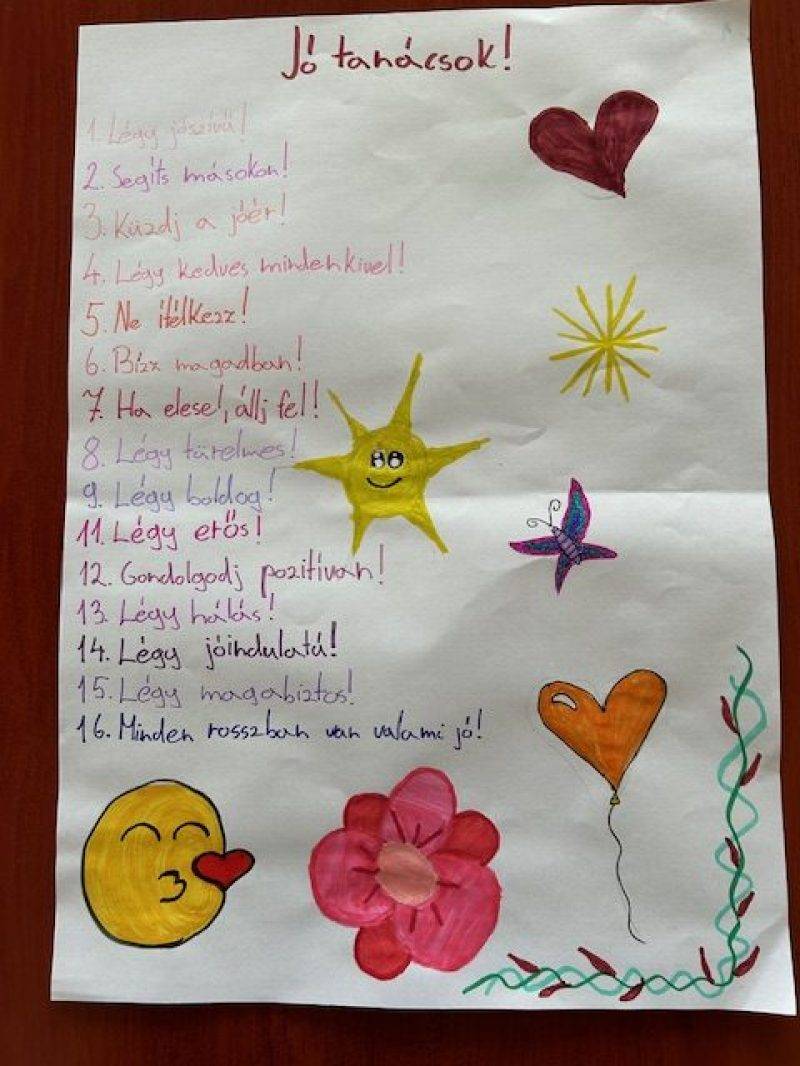 Jó tanácsok!
1. Légy jószívű!
2. Segíts másokon!
3. Küzdj a jóért!
4. Légy kedves mindenkivel!
5. Ne ítélkezz!
6. Bízz magadban!
7. Ha elesel, állj fel!
8. Légy türelmes!
9. Légy boldog!
11. Légy erős!
12. Gondolgodj pozitívan!
13. Légy hálás!
14. Légy jóindulatú!
15. Légy magabiztos!
16. Minden rosszban van valami jó!